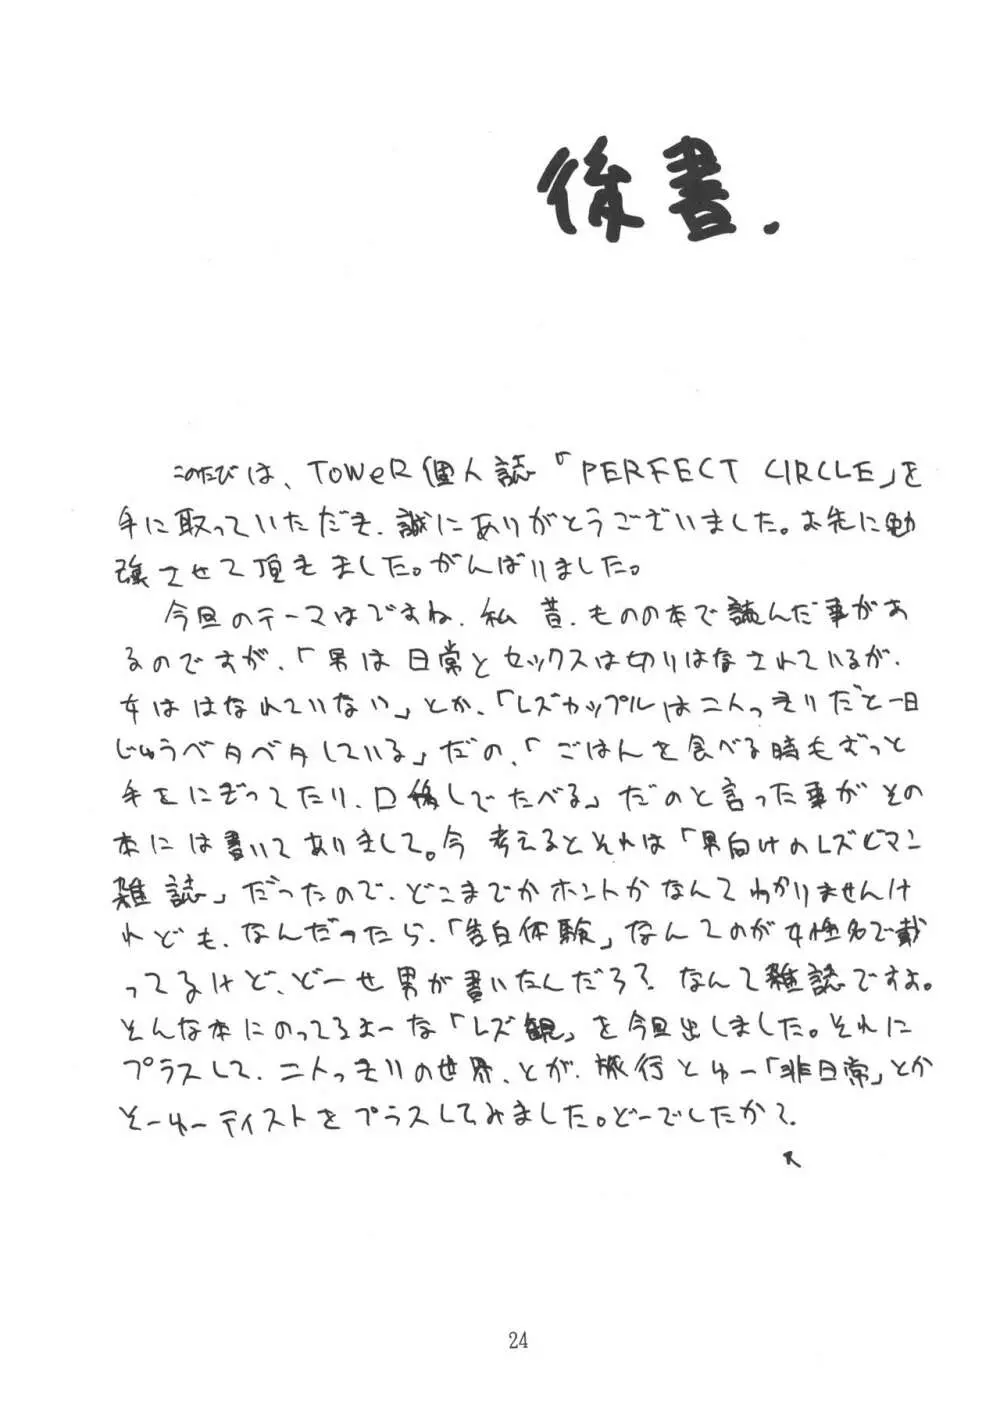 後書.
このたびは、ToWeR個人誌「PERFECT CIRCLE」を
手に取っていただき、誠にありがとうございました。お先に勉
強させて頂きました。がんばりました。
今回のテーマはですね、私 昔、ものの本で読んだ事があ
るのですが、「男は日常とセックスは切りはなされているが、
女ははなれていない」とか、「レズカップルは二人っきりだと一日
じゅうベタベタしている」だの、「ごはんを食べる時もずっと
手をにぎってたり、口移しでたべる」だのと言った事がその
本には書いてありまして。今 考えるとそれは「男向けのレズビアン
雑誌」だったので、どこまでがホントかなんてわかりませんけ
れども、なんだったら、「告白体験」なんてのが女性名で載
ってるけど、どーせ男が書いたんだろ?なんて雑誌ですよ。
そんな本にのってるよーな「レズ観」を今回出しました。それに
プラスして、二人っきりの世界、とか、旅行とゆー「非日常」とか
そーゆーテイストをプラスしてみました。どーでしたか?
R
24